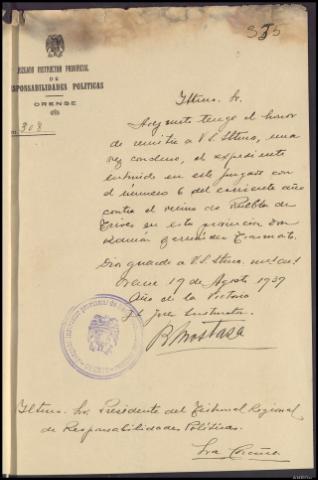 335
JUZGADO INSTRUCTOR PROVINCIAL
DE
RESPONSABILIDADES POLITICAS
ORENSE
308
Iltmo. Sr.
Adjunto tengo el honor
de remitir a V.S. Iltma, una
vez concluso, el expediente
instruido en este Juzgado con
el número 6 del corriente año
contra el vecino de Puebla de
Trives en esta provincia Don
Ramón
Dios guarde a V.S. Iltma. m. a.
Orense 19 de Agosto 1939
Año de la Victoria
El Juez Instructor
Iltmo. Sr. Presidente del Tribunal Regional
de Responsabilidades Políticas.
La Coruña